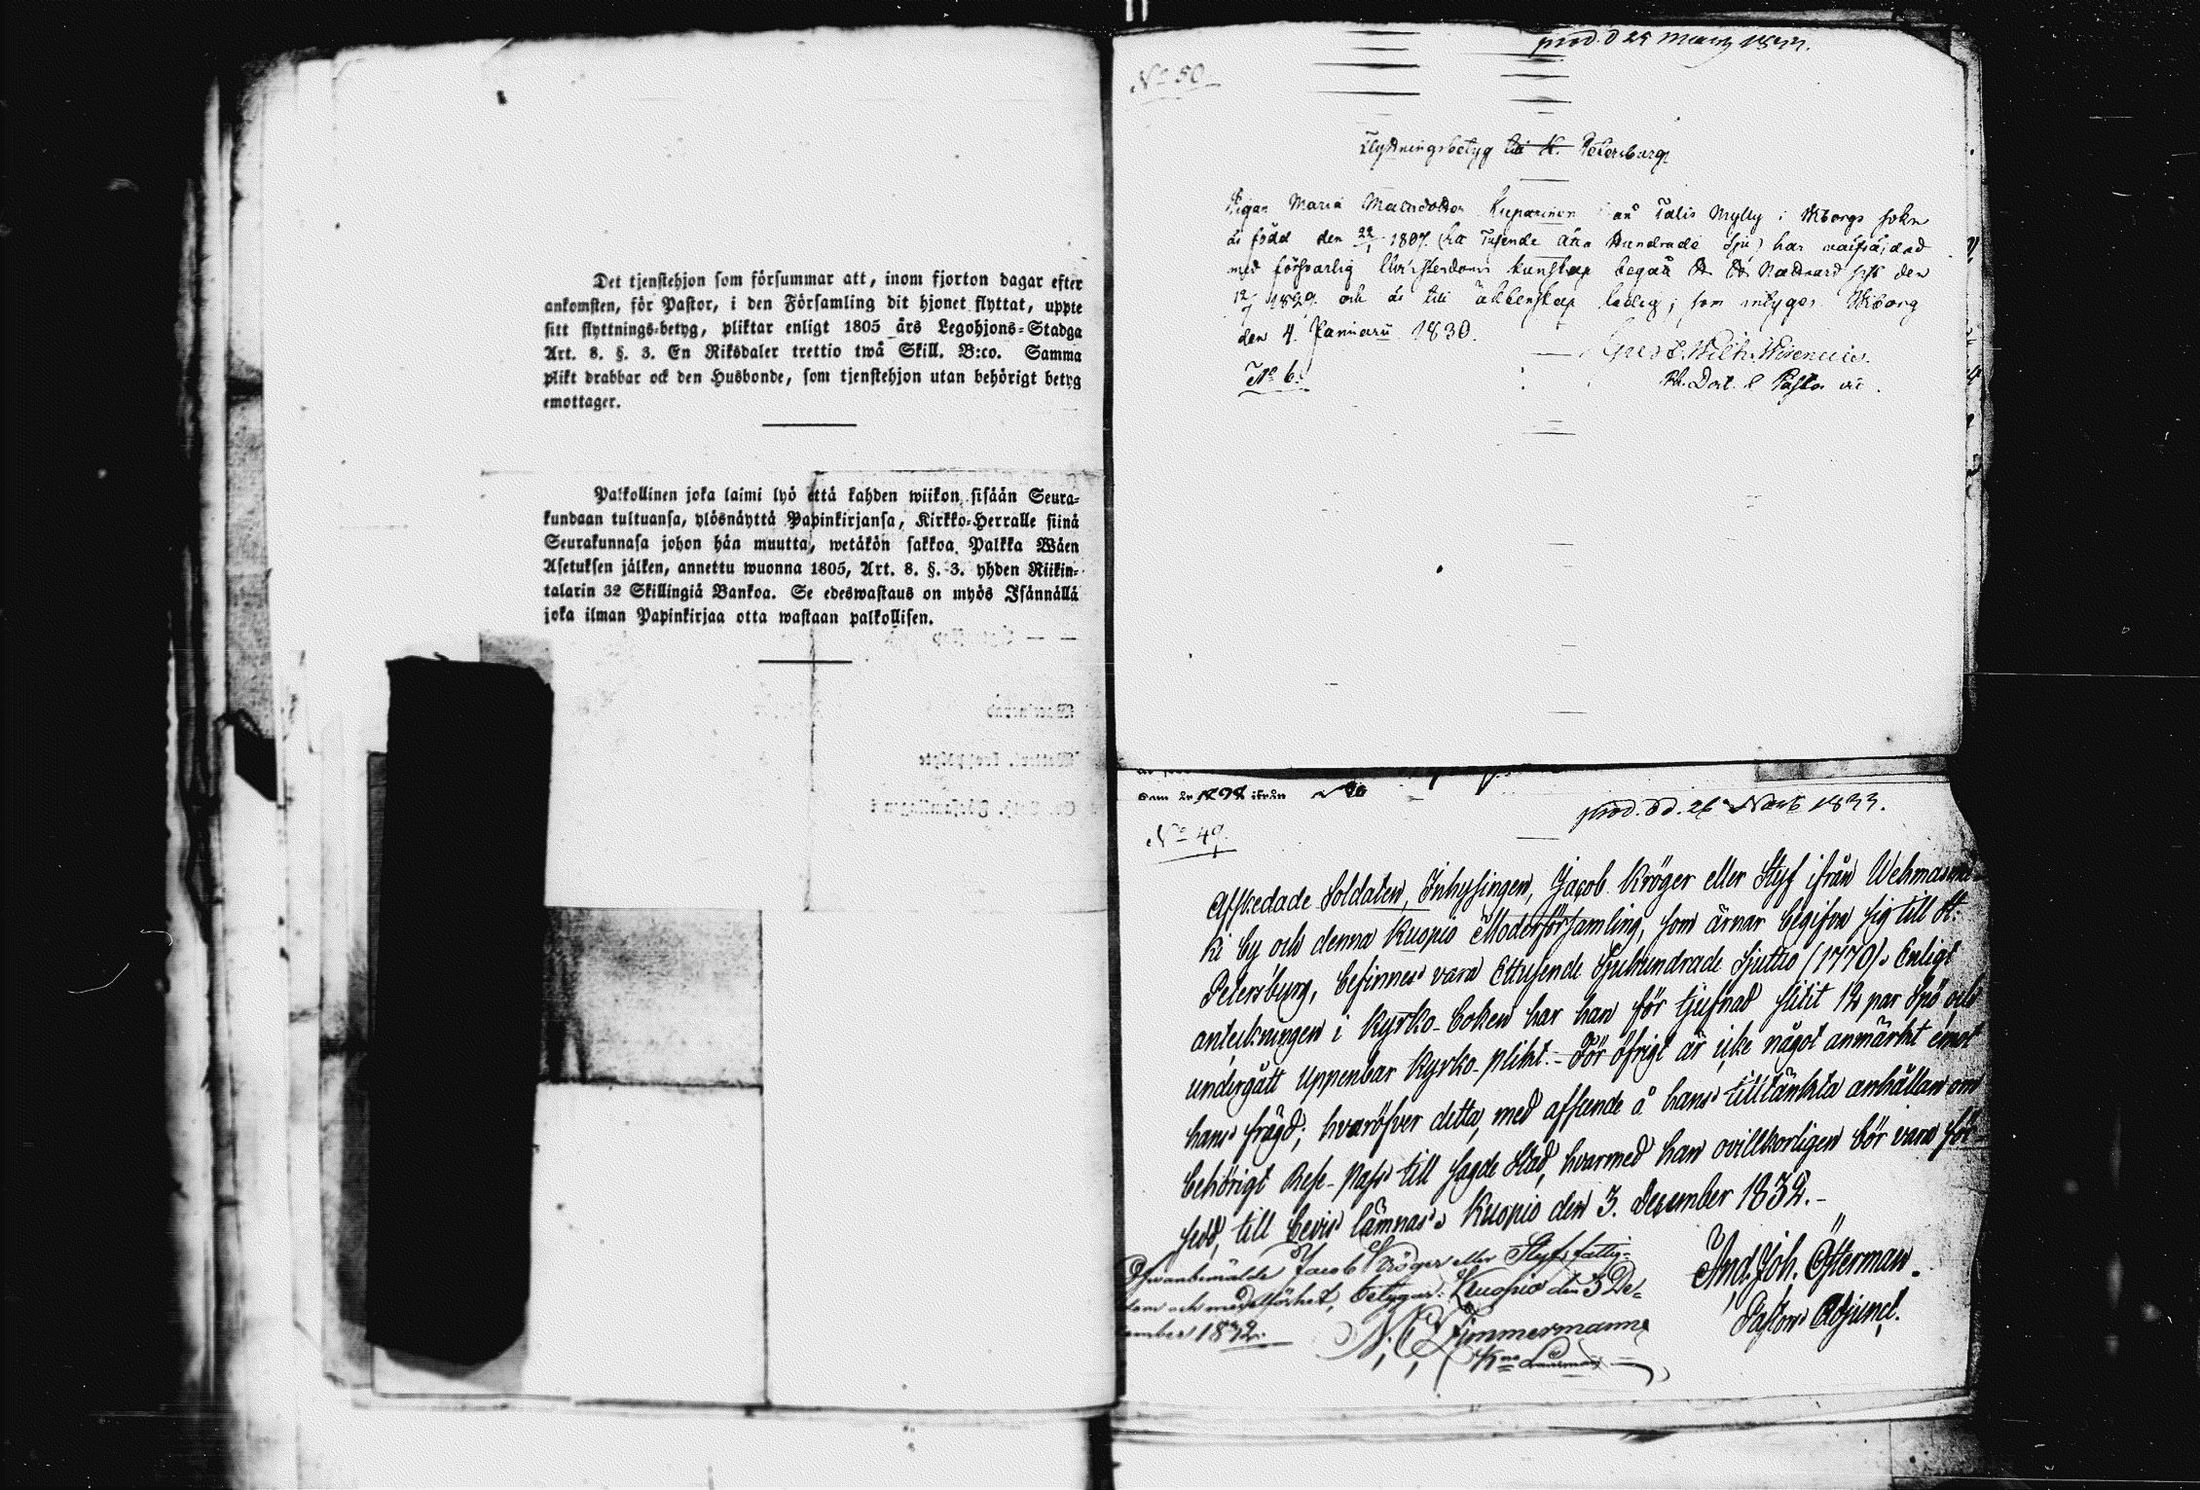 Det tjenstehjon som försummar att, inom fjorton dagar efter
ankomsten, för Pastor, i den Församling dit hjonet flyttat, uppte
sitt flyttnings-betyg, pliktar enligt 1805 års Legohjons-Stadga
Art. 8. §. 3. En Riksdaler trettio twå Skill. B:co. Samma
plikt drabbar ock den Husbonde, som tjenstehjon utan behörigt betyg
emottager.
Palkollinen joka laimi lyö että kahden wiikon sisään Seura-
kundaan tultuansa, ylösnäyttä Papinkirjansa, Kirkko-Herralle siinä
Seurakunnasa johon hän muutta, wetäkön sakkoa Palkka Wäen
Asetuksen jälken, annettu wuonna 1805, Art. 8. §. 3. yhden Riikin-
talarin 32 Skillingiä Bankoa. Se edeswastaus on myös Isännällä
joka ilman Papinkirjaa otta wastaan palkollisen.
prod. d 29 1833.
No 50
Flyttningsbetyg till St. Petersburg
Pigan Maria Kuparinen från Talis Mylly i Wiborgs sokn
är född den 22/1 1807 (Ett Tusende åtta Hundrade Sju) har
med försvarlig Christendoms kunskap begått Nattvard sist den
12/7 1829. och är till äktenskap ledig; som intygar Wiborg
den 4 Januarii 1830.
No 6.
Wilh.
Pastor
ifrån
prod. d. 26 1833.
No 49.
Afskedade Soldaten, Inhysingen, Jacob Kröger eller Styf ifrån Wehmasmä-
ki by och denna Kuopio Moderförsamling, som ärnar begifva sig till St.
Petersburg, befinnes vara Ettusende Sjuhundrade Sjuttio (1770). Enligt
anteckningen i Kyrko-boken har han för tjufnad slitit 12 par Spö och
undergått Uppenbar Kyrko-plikt. För öfrigt är icke något anmärkt emot
hans frägd; hvaröfver detta, med afseende å hans tilltänkta anhållan om
behörigt Rese-Pass till sagde Stad, hvarmed han ovillkorligen bör vara för-
sedd, till bevis lämnas. Kuopio den 3. December 1832.
And. Joh. Österman.
Pastors Adjunct.
Ofvanbemälde Jacob Kröger eller Styfs fattig-
dom och medellöshet, betygar: Kuopio den 3 De-
cember 1832.
N. C. Zimmermann
Länsman